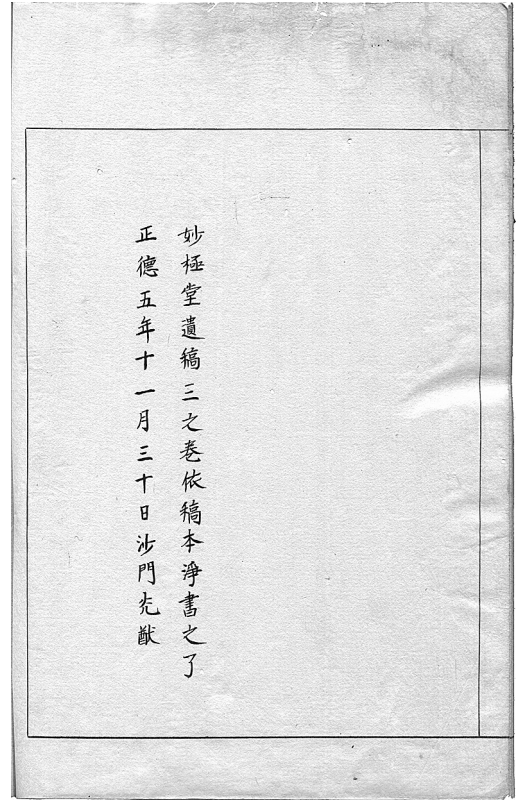 妙極堂遺稿三之卷依稿本淨書之了
正德五年十一月三十日沙門光猷